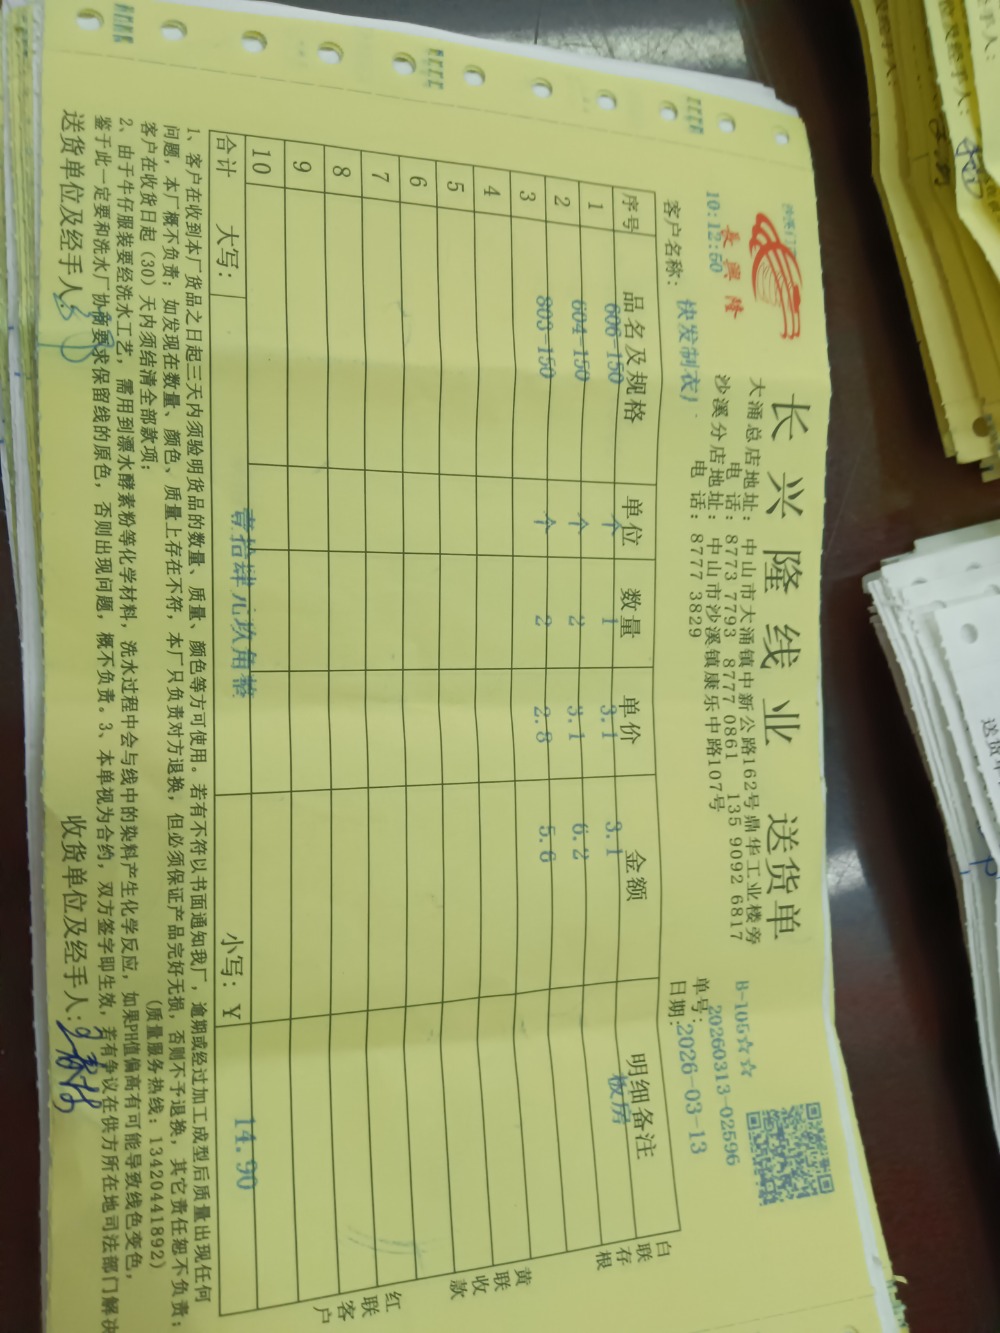 沙溪门市
长兴隆
10:12:50
长兴隆线业 送货单
大涌总店地址: 中山市大涌镇中新公路162号鼎华工业楼旁
电 话: 8773 7793 8777 0861 135 9092 6817
沙溪分店地址: 中山市沙溪镇康乐中路107号
电 话: 8777 3829
B-105☆☆
单号: 20260313-02596
客户名称: 快发制衣厂
日期: 2026-03-13
序号 品名及规格 单位 数量 单价 金额 明细备注
1 606-150 个 1 3.1 3.1 板房
2 604-150 个 2 3.1 6.2
3 803-150 个 2 2.8 5.6
4
5
6
7
8
9
10
合计 大写: 壹拾肆元玖角整 小写: ¥ 14.90
白联存根
黄联收款
红联客户
1、客户在收到本厂货品之日起三天内须验明货品的数量、质量、颜色等方可使用。若有不符以书面通知我厂, 逾期或经过加工成型后质量出现任何
问题, 本厂概不负责; 如发现在数量、颜色、质量上存在不符, 本厂只负责对方退换, 但必须保证产品完好无损, 否则不予退换, 其它责任恕不负责;
客户在收货日起(30)天内须结清全部款项; (质量服务热线: 13420441892)
2、由于牛仔服装要经洗水工艺, 需用到漂水酵素粉等化学材料, 洗水过程中会与线中的染料产生化学反应, 如果PH值偏高有可能导致线色变色,
鉴于此一定要和洗水厂协商要求保留线的原色, 否则出现问题, 概不负责。3、本单视为合约, 双方签字即生效, 若有争议在供方所在地司法部门解决
送货单位及经手人: 收货单位及经手人: